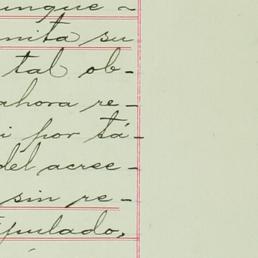 unque ~
mita su
tal ob-
ahora re-
i por tá-
del acree-
sin re-
ipulado,